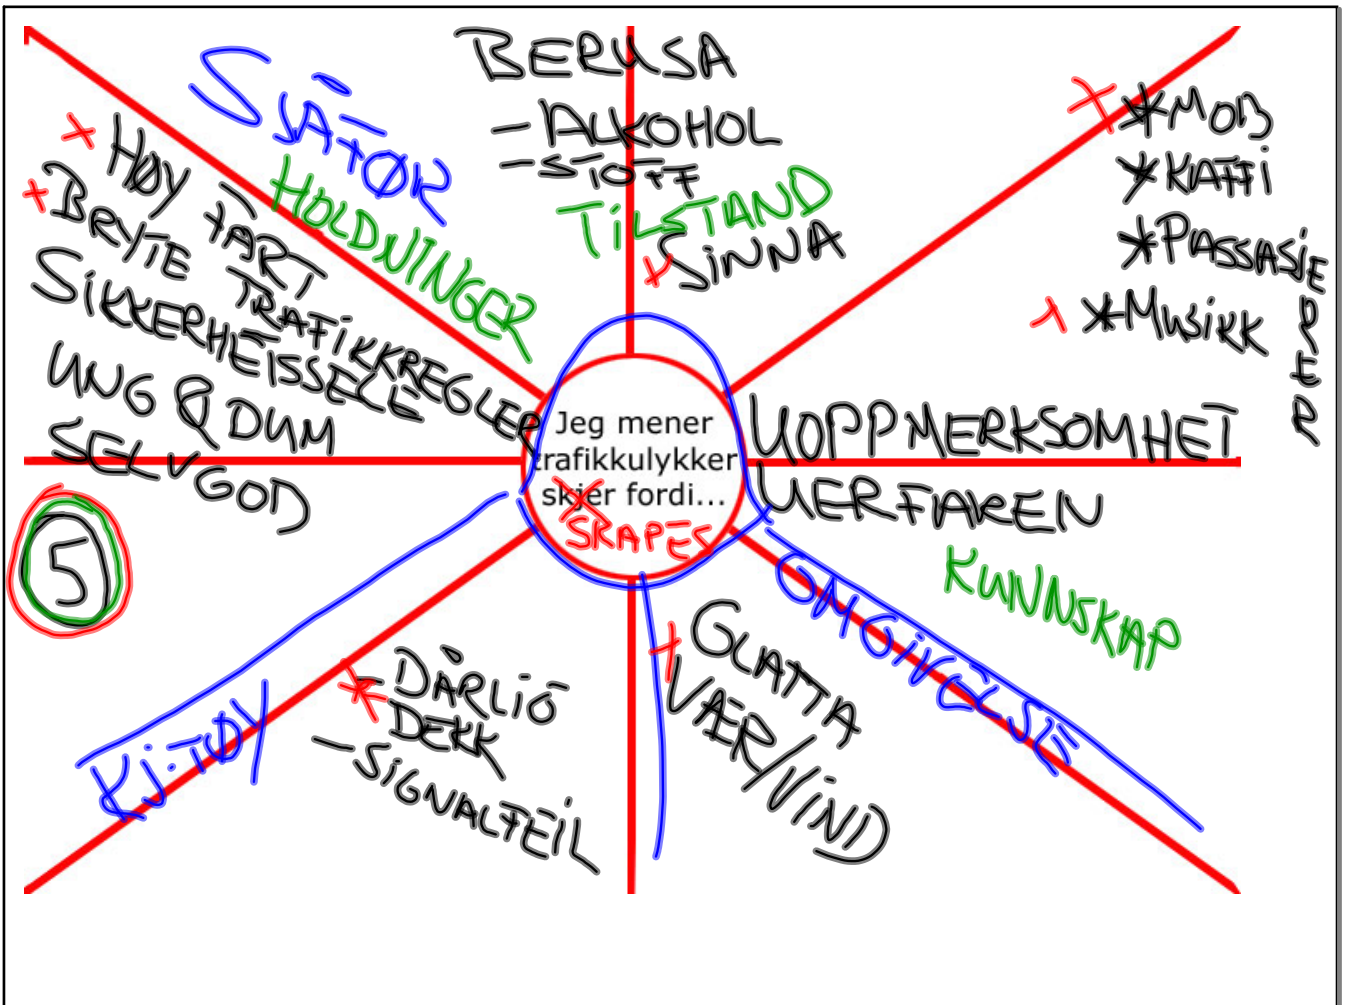 SJÅFØR
HOLDNINGER
HØY FART
BRYTE TRAFIKKREGLER
SIKKERHETSSELE
UNG & DUM
SELVGOD
5
BERUSA
- ALKOHOL
- STOFF
TILSTAND
SINNA
* MOB
* KAFFI
* PASSASJERER
* MUSIKK
UOPPMERKSOMHET
Jeg mener
trafikkulykker
skjer fordi...
UERFAREN
KUNNSKAP
OMGIVELSE
GLATTA
VÆR/VIND
KJ.TØY
- DÅRLIG
DEKK
- SIGNALFEIL